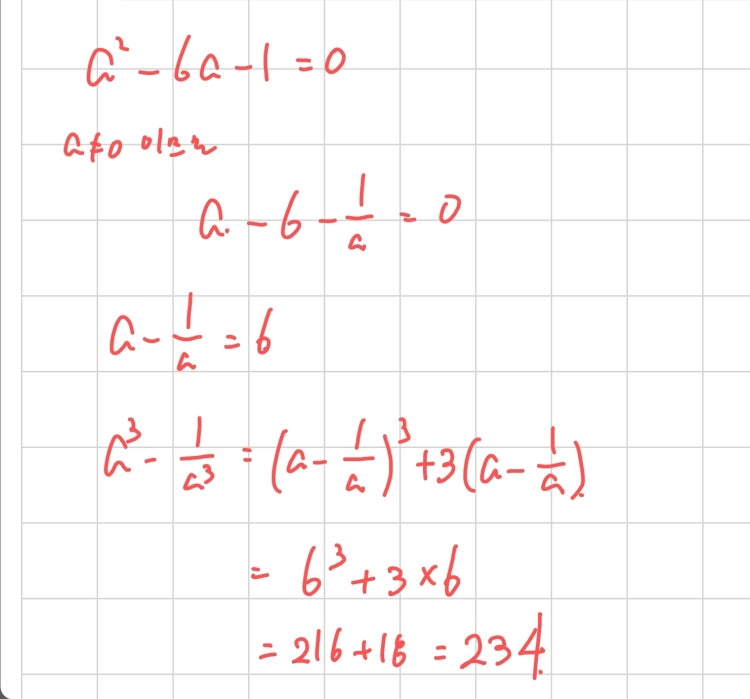 a² - 6a - 1 = 0
a≠0 이므로
a - 6 - 1/a = 0
a - 1/a = 6
a³ - 1/a³ = (a - 1/a)³ + 3(a - 1/a)
= 6³ + 3 × 6
= 216 + 18 = 234